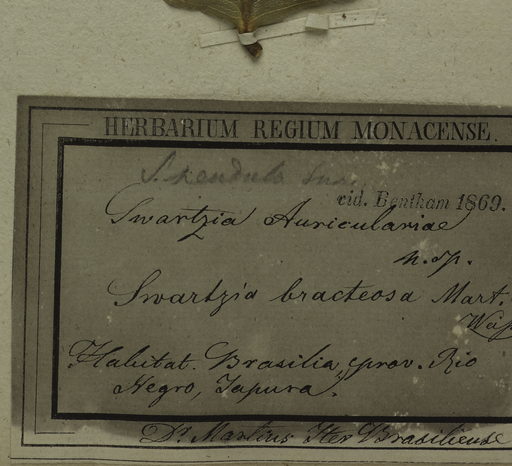 HERBARIUM REGIUM MONACENSE.
S. pendula
vid. Bentham 1869.
Swartzia Auriculariae
n. sp.
Swartzia bracteosa Mart.
Habitat. Brasilia, prov. Rio
Negro, Japura.
Dr. Martius Iter Brasiliense